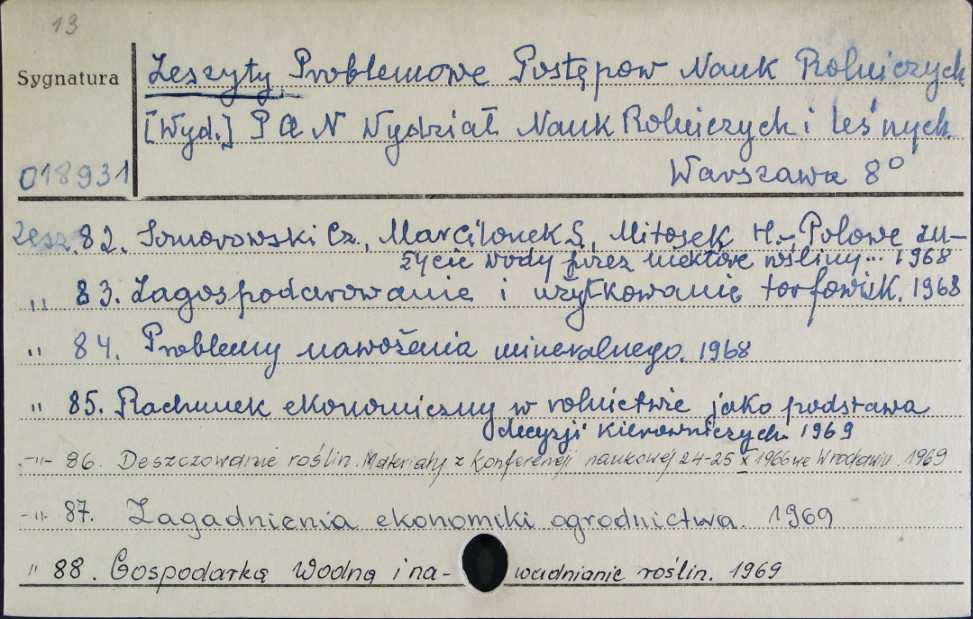 13
Sygnatura
Zeszyty Problemowe Postępow Nauk Rolniczych
[Wyd.] PAN Wydział Nauk Rolniczych i Leśnych.
018931
Warszawa 8°
Zesz. 82. Somorowski Cz., Marcilonek S., Mitosek H.-, Polowe zu-
życie wody przez niektóre rośliny... 1968
„ 83. Zagospodarowanie i użytkowanie torfowisk. 1968
" 84. Problemy nawożenia mineralnego. 1968
" 85. Rachunek ekonomiczny w rolnictwie jako podstawa
decyzji kierowniczych. 1969
-"- 86. Deszczowanie roślin. Materiały z Konferencji naukowej 24-25 X 1966 we Wrocławiu. 1969
-"- 87. Zagadnienia ekonomiki ogrodnictwa. 1969
" 88. Gospodarka Wodna i na- wadnianie roślin. 1969